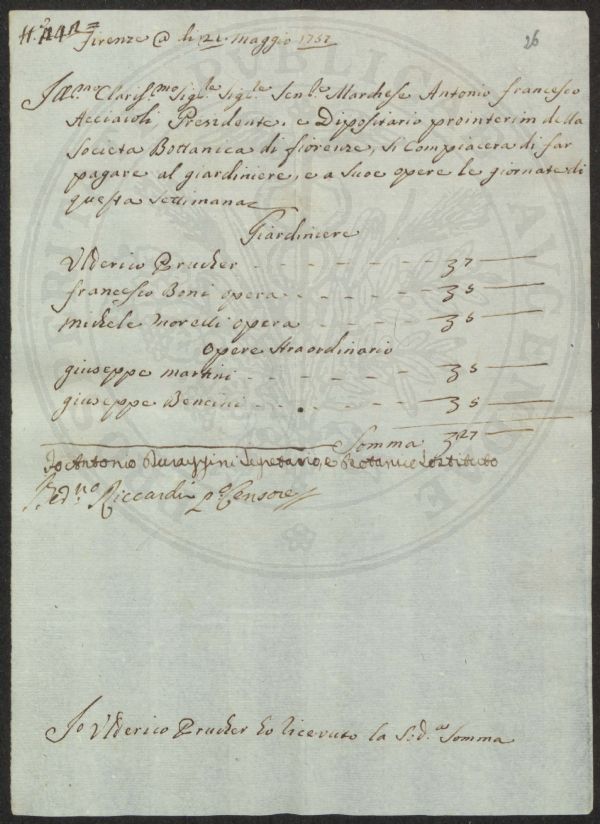 26
Firenze @ li 21 Maggio 1757
Ill.mo Clariss.mo Sig.le Sig.le Sen.le Marchese Antonio Francesco
Acciaioli Presidente, e Dipositario prointerim della
Societa Bottanica di fiorenze, si compiacera di far
pagare al giardiniere, e a suoe opere le giornate di
questa settimana
Giardiniere
Ulderico Prucker 7
francesco Boni opera 5
michele morelli opera 5
opere straordinario
giuseppe martini 5
giuseppe Bencini 5
Somma 27
Io Antonio Durazzini Segretario, e Botanico sostituto
Riccardi P.o Censore
Io Ulderico Prucker ho ricevuto la Sud.a Somma